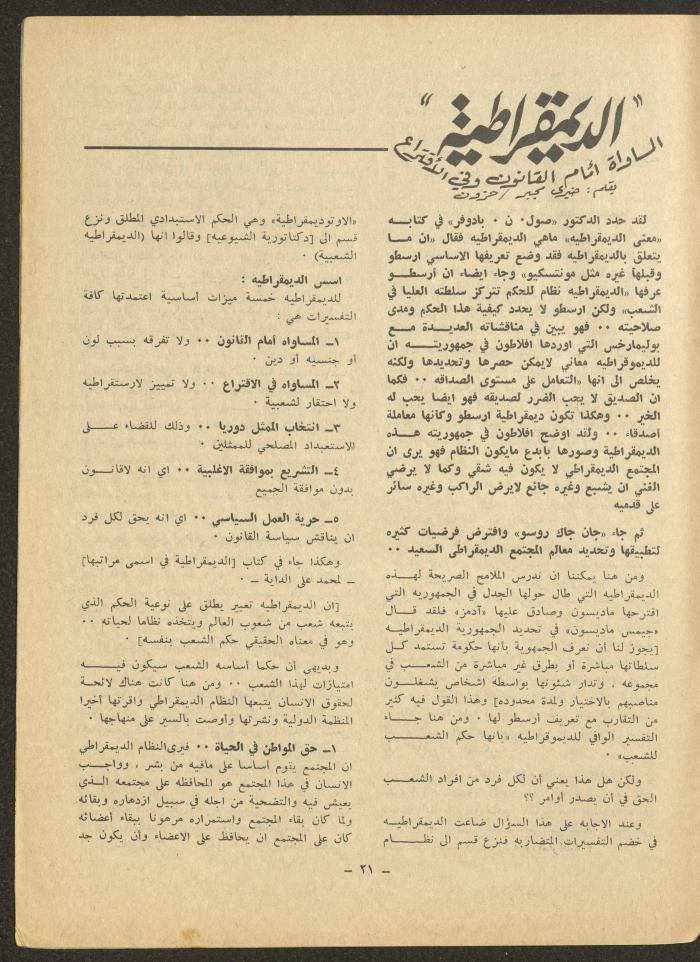 "الديمقراطية"
المساواة أمام القانون وفي الأقتراع
بقلم : خيري مجير / حزون
لقد حدد الدكتور «صول ٠ ن ٠ بادوفر» في كتابــه
«معنى الديمقراطيه» ماهي الديمقراطيه فقال «ان مــا
يتعلق بالديمقراطيه فقد وضع تعريفها الاساسي ارسطو
وقبلها غيره مثل مونتسكيو» وجاء ايضاء ان أرسطــو
عرفها «الديمقراطيه نظام للحكم تتركز سلطته العليا في
الشعب» ولكن ارسطو لا يحدد كيفية هذا الحكم ومدى
صلاحيته ٠٠ فهو يبين في مناقشاته العديــدة مــع
بوليمارخس التي اوردها افلاطون في جمهوريتــــه ان
للديموقراطيه معاني لايمكن حصرها وتحديدها ولكنه
يخلص الى انها «التعامل على مستوى الصداقه ٠٠ فكما
ان الصديق لا يجب الضرر لصديقه فهو ايضا يجب له
الخير ٠٠ وهكذا تكون ديمقراطية ارسطو وكأنها معاملة
أصدقاء ٠٠ ولقد اوضح افلاطون في جمهوريته هــذه
الديمقراطية وصورها بابدع مايكون النظام فهو يرى ان
المجتمع الديمقراطي لا يكون فيه شقي وكما لا يرضي
الفني ان يشبع وغيره جائع لايرض الراكب وغيره سائر
على قدميه
ثم جاء «جان جاك روسو» وافترض فرضيات كثيره
لتطبيقها وتحديد معالم المجتمع الديمقراطى السعيد ٠٠
ومن هنا يمكننا ان ندرس الملامح الصريحة لهــذه
الديمقراطيه التي طال حولها الجدل في الجمهوريه التي
اقترحها ماديسون وصادق عليها «آدمز» فلقد قــال
«جيمس ماديسون» في تحديد الجمهورية الديمقراطيــه
[يجوز لنا أن نعرف الجمهوية بأنها حكومة تستمد كــل
سلطاتها مباشرة أو بطرق غير مباشرة من الشعــب في
مجموعه ، وتدار شئونها بواسطة اشخاص يشغلــون
مناصبهم بالاختيار ولمدة محدوده] وهذا القول فيه كثير
من التقارب مع تعريف أرسطو لها ٠ ومن هنا جــاء
التفسير الوافي للديموقراطيه «بأنها حكم الشعــــب
للشعب» ٠
ولكن هل هذا يعني أن لكل فرد من افراد الشعــب
الحق في أن يصدر أوامر ؟؟
وعند الاجابه على هذا السؤال ضاعت الديمقراطيــه
في خضم التفسيرات المتضاربه فنزع قسم الى نظــام
«الاوتوديمقراطية» وهي الحكم الاستبدادي المطلق ونزع
قسم الى [دكتاتورية الشيوعيه] وقالوا انها (الديمقراطيه
الشعبية) ٠
اسس الديمقراطيه :
للديمقراطيه خمسة ميزات أساسية اعتمدتها كافة
التفسيرات هي :
١ـ المساواه أمام القانون ٠٠ ولا تفرقه بسبب لون
أو جنسيه أو دين ٠
٢ـ المساواه في الاقتراع ٠٠ ولا تمييز لارستقراطيه
ولا احتقار لشعبية ٠
٣ـ انتخاب الممثل دوريا ٠٠ وذلك للقضاء عــلى
الاستعبداد المصلحي للممثلين ٠
٤ـ التشريع بموافقة الاغلبية ٠٠ اي انه لاقانــون
بدون موافقة الجميع
٥ـ حرية العمل السياسي ٠٠ اي انه يحق لكل فرد
ان يناقش سياسة القانون ٠
وهكذا جاء في كتاب [الديمقراطية في اسمى مراتبها]
ــ لمحمد على الداية ــ ٠
[ان الديمقراطيه تعبير يطلق على نوعية الحكم الذي
يتبعه شعب من شعوب العالم ويتخذه نظاما لحياته ٠٠
وهو في معناه الحقيقي حكم الشعب بنفسه] ٠
وبديهي أن حكما أساسه الشعب سيكون فيــــه
امتيازات لهذا الشعب ٠٠ ومن هنا كانت هناك لائحــة
لحقوق الانسان يتبعها النظام الديمقراطي واقرتها أخيرا
المنظمة الدولية ونشرتها وأوصت بالسير على منهاجها ٠
١ـ حق المواطن في الحياة ٠٠ فيرىالنظام الديمقراطي
ان المجتمع يقوم أساسا على مافيه من بشر ، وواجــب
الانسان في هذا المجتمع هو المحافظه على مجتمعه الــذي
يعيش فيه والتضحية من اجله في سبيل ازدهاره وبقائه
ولما كان بقاء المجتمع واستمراره مرهونا ببقاء أعضائه
كان على المجتمع ان يحافظ على الاعضاء وأن يكون جد
ــ ٢١ ــ